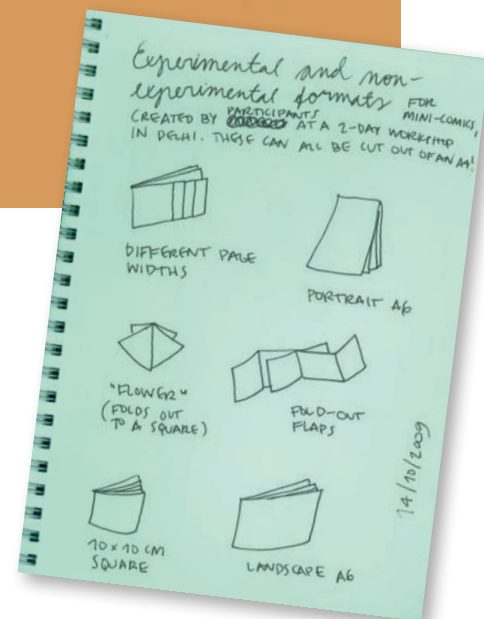 Experimental and non-
experimental formats FOR
MINI-COMICS,
CREATED BY PARTICIPANTS AT A 2-DAY WORKSHOP
IN DELHI. THESE CAN ALL BE CUT OUT OF AN A4!
DIFFERENT PAGE
WIDTHS
PORTRAIT A6
"FLOWER"
(FOLDS OUT
TO A SQUARE)
FOLD-OUT
FLAPS
10 x 10 CM
SQUARE
LANDSCAPE A6
14/10/2009